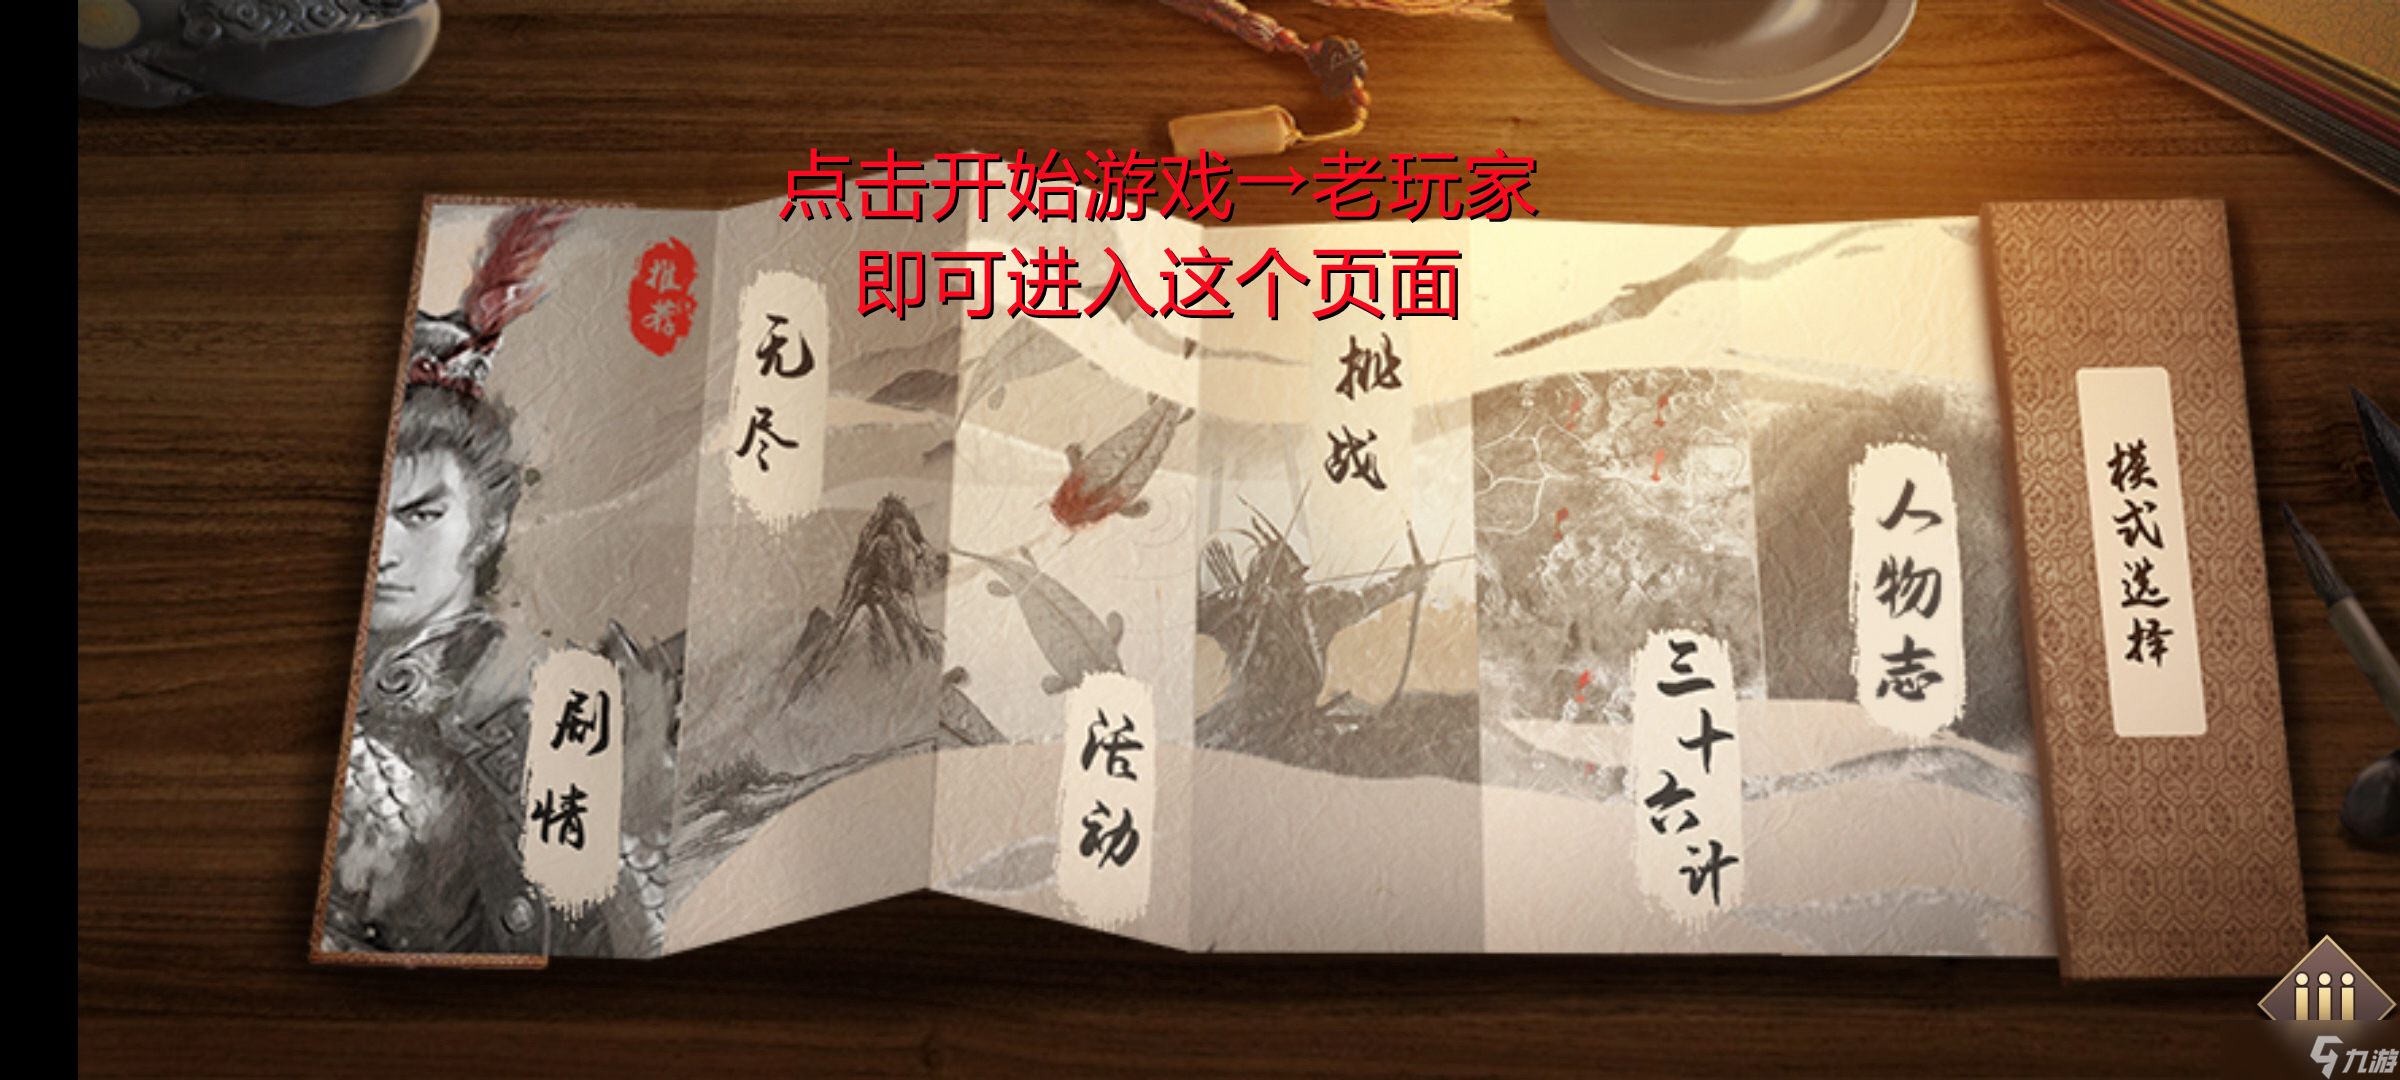 点击开始游戏→老玩家
即可进入这个页面
推荐
无尽
挑战
人物志
模式选择
剧情
活动
三十六计
九游